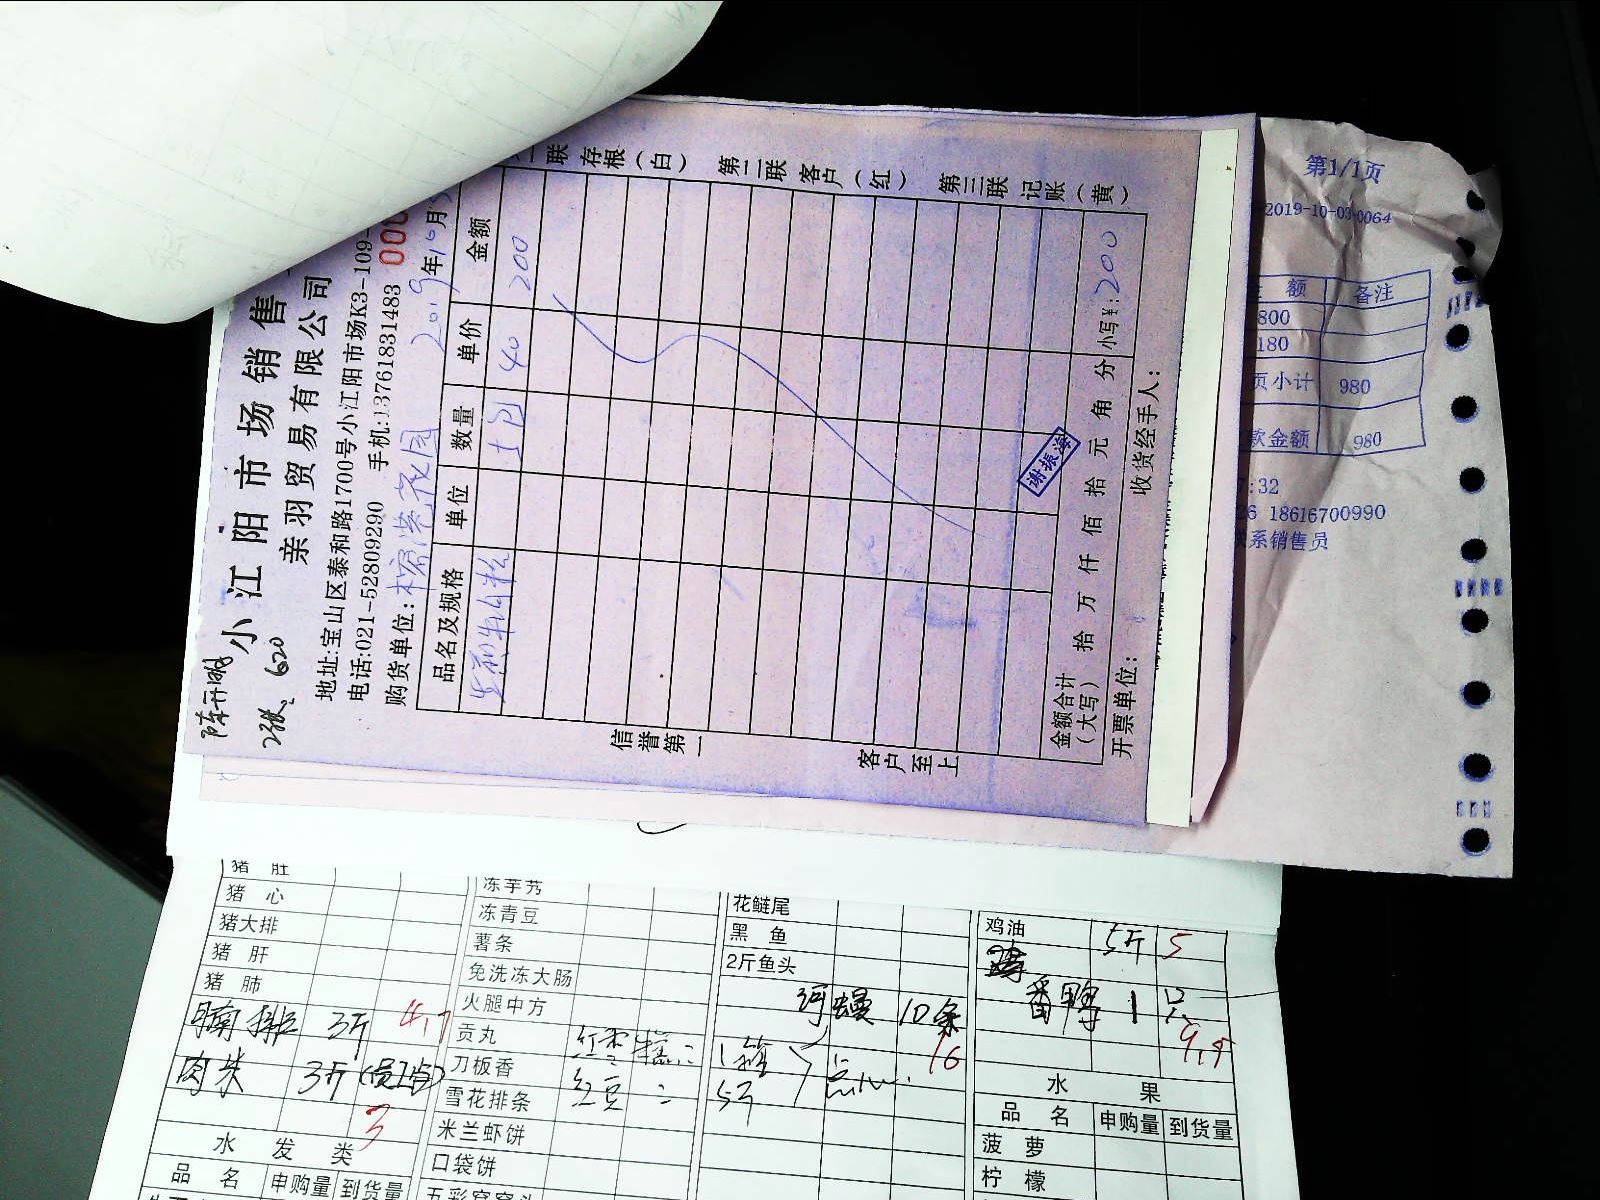 陈开明
2张、620
小江阳市场销售
亲羽贸易有限公司
地址:宝山区泰和路1700号小江阳市场K3-109-
电话:021-52809290 手机:13761831483 000
购货单位: 花园 2019年10月
品名及规格 单位 数量 单价 金额
40 200
金额合计(大写) 拾 万 仟 佰 拾 元 角 分 小写¥:200
开票单位: 收货经手人:
谢振海
信誉第一 客户至上
联 存根(白) 第二联 客户(红) 第三联 记账(黄)
第1/1页
2019-10-03-0064
额 备注
800
180
页小计 980
款金额 980
7:32
26 18616700990
联系销售员
猪肚
猪心
猪大排
猪肝
猪肺
腩排 3斤 4.7
肉米 3斤(员工点)
3
水发类
品名 申购量 到货量
冻芋艿
冻青豆
薯条
免洗冻大肠
火腿中方
贡丸
刀板香
雪花排条
米兰虾饼
口袋饼
五彩窝窝头
红枣糕 1箱
红豆 5斤
点心
花鲢尾
黑鱼
2斤鱼头
河鳗 10条
16
鸡油 5斤 5
番鸭 1只
9.5
水果
品名 申购量 到货量
菠萝
柠檬